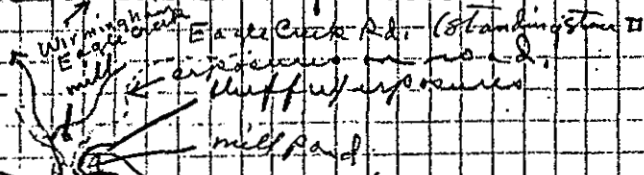 Wirmingham
Eagle Creek
mill
Eagle Creek Rd. (Standingstone II
exposures on road,
bluff w/ exposures
mill pond